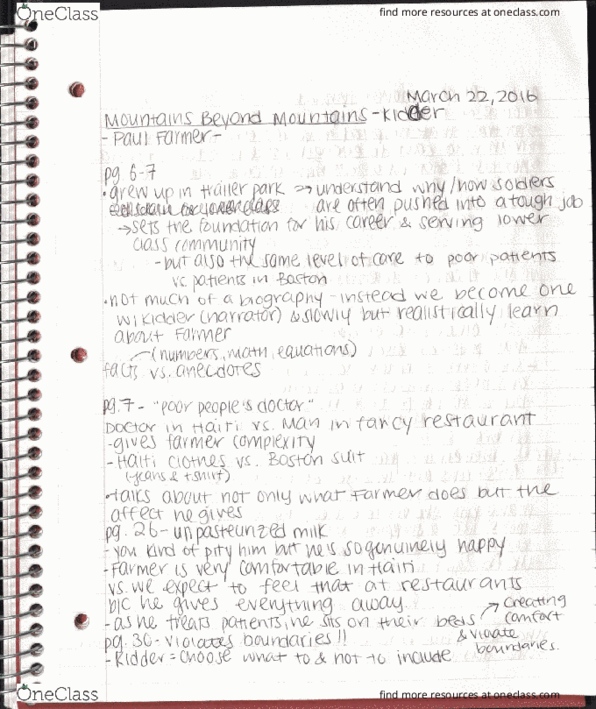 OneClass
find more resources at oneclass.com
March 22, 2016
Mountains Beyond Mountains - Kidder
- Paul Farmer -
pg 6-7
• grew up in trailer park => understand why/how soldiers
are often pushed into a tough job
→ sets the foundation for his career & serving lower
class community
- but also the same level of care to poor patients
vs patients in Boston
• not much of a biography - instead we become one
w/ Kidder (narrator) & slowly but realistically learn
about Farmer
(numbers, math, equations)
facts vs. anecdotes
pg. 7 - "poor people's doctor"
Doctor in Haiti vs. Man in fancy restaurant
- gives farmer complexity
- Haiti clothes vs. Boston suit
(jeans & t-shirt)
• talks about not only what Farmer does but the
affect he gives
pg. 26 - unpasteurized milk
- you kind of pity him but he is so genuinely happy
- Farmer is very comfortable in Haiti
vs. we expect to feel that at restaurants
b/c he gives everything away.
- as he treats patients, he sits on their beds ↗ creating comfort
& violate boundaries.
pg. 30 - violates boundaries!!
- Kidder = choose what to & not to include
OneClass
find more resources at oneclass.com